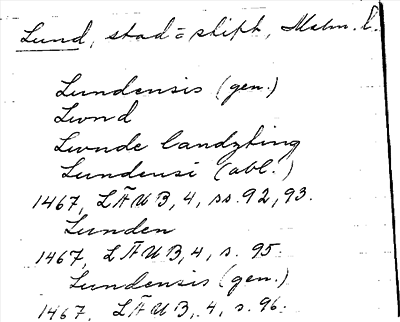 Lund, stad = stift, Malm. l.
Lundensis (gen.)
Lwnd
Lwnde landzting
Lundensi (abl.)
1467, LÄUB, 4, ss. 92, 93.
Lunden
1467, LÄUB, 4, s. 95.
Lundensis (gen.)
1467, LÄUB, 4, s. 96.